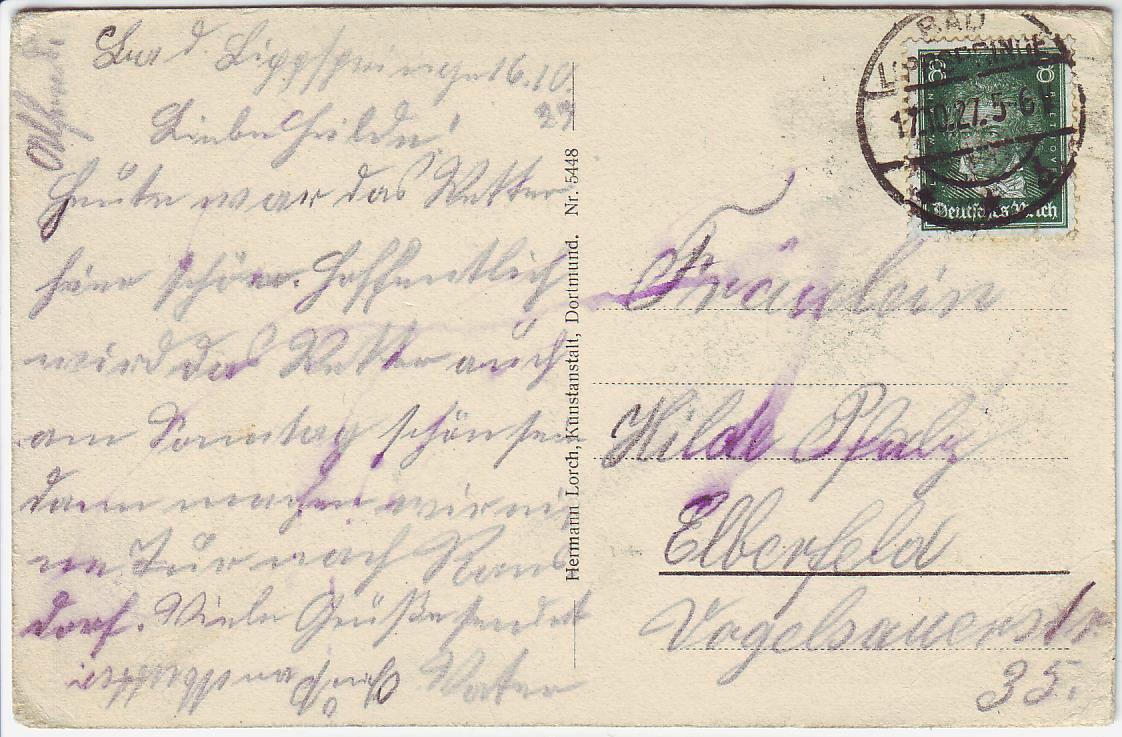 Bad Lippspringe 16.10.
27
Liebe Hilde!
Heute war das Wetter
hier schön. Hoffentlich
wird das Wetter auch
am Sonntag schön sein
dann machen wir ei
ne Tur nach Rons
dorf. Viele Grüße sendet
Vater
Hermann Lorch, Kunstanstalt, Dortmund. Nr. 5448
BAD
LIPPSPRINGE
17.10.27.5-6
8 8
Deutsches Reich
Fräulein
Hilde Pfalz
Elberfeld
Vogelsauerstr
35.